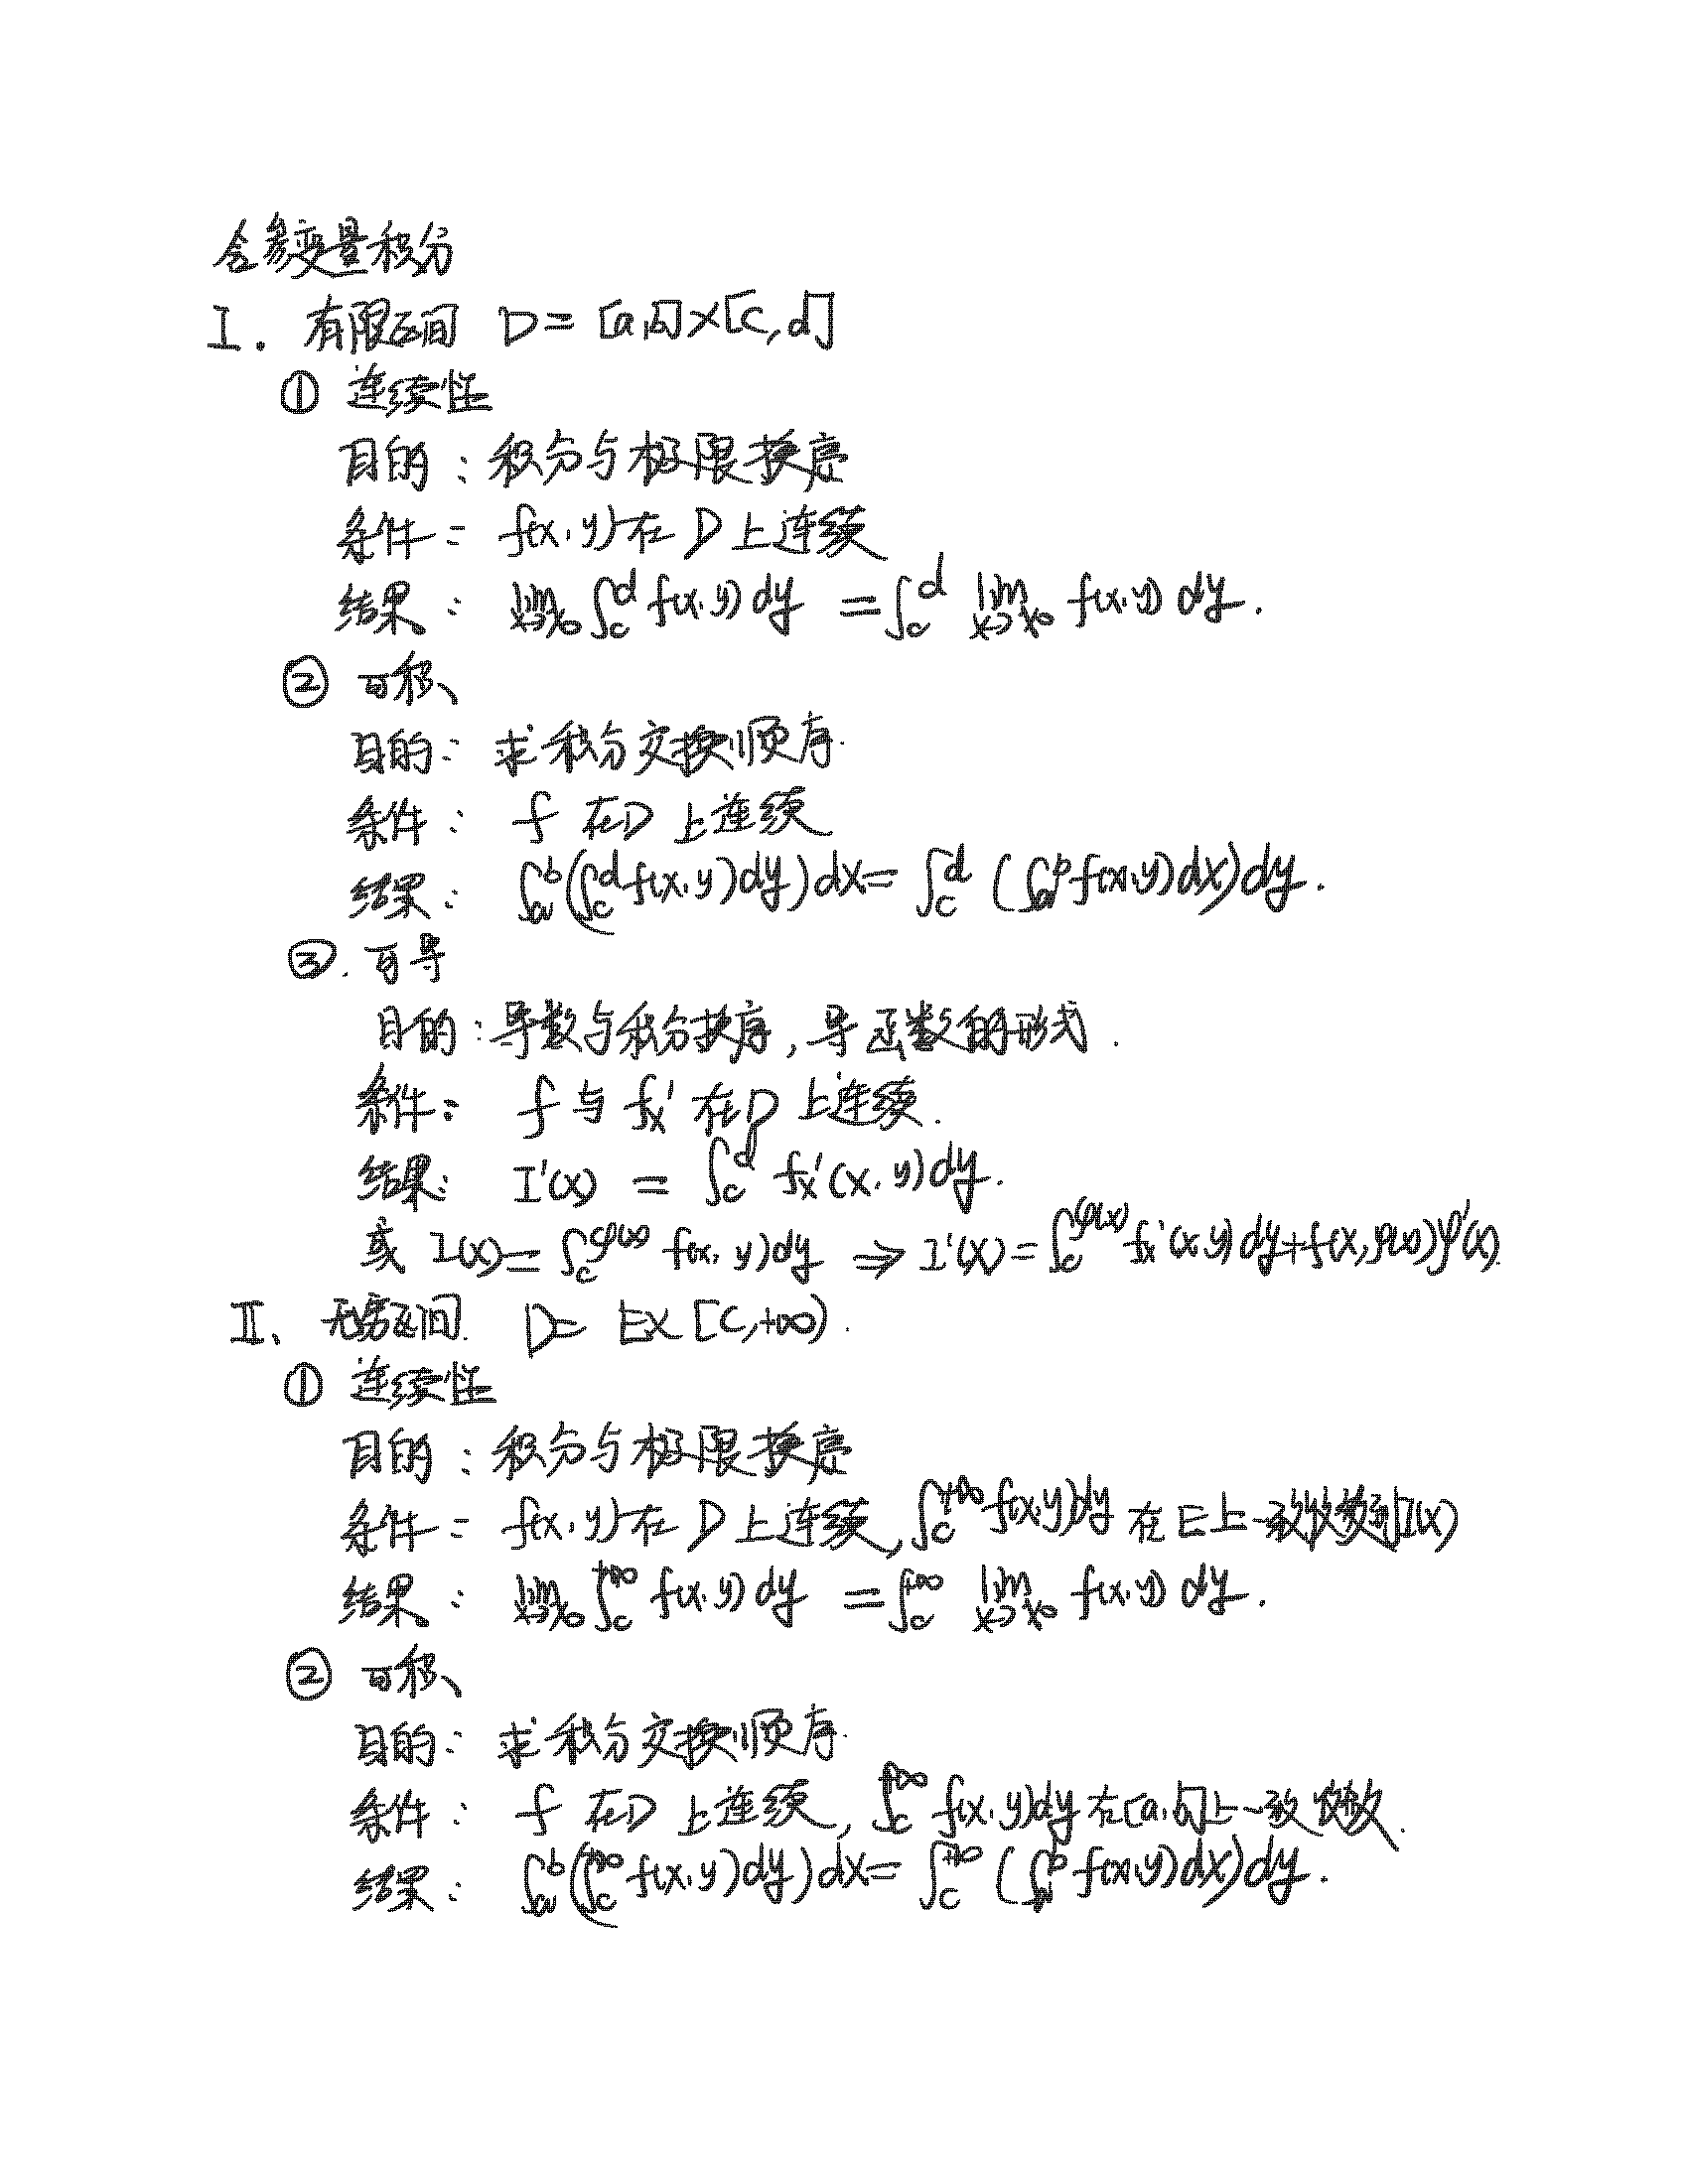 含参变量积分
I. 有限区间 D = [a,b]×[c,d]
① 连续性
目的：积分与极限换序
条件： f(x,y)在D上连续
结果： lim_{x→x₀} ∫_c^d f(x,y)dy = ∫_c^d lim_{x→x₀} f(x,y)dy.
② 可积、
目的： 求积分交换顺序.
条件： f 在D上连续
结果： ∫_a^b(∫_c^d f(x,y)dy)dx = ∫_c^d (∫_a^b f(x,y)dx)dy.
③. 可导
目的：导数与积分换序,导函数的形式.
条件： f与fₓ' 在D上连续.
结果： I'(x) = ∫_c^d fₓ'(x,y)dy.
或 I(x)=∫_c^{φ(x)} f(x,y)dy ⇒ I'(x)=∫_c^{φ(x)} fₓ'(x,y)dy+f(x,φ(x))φ'(x).
II、 无穷区间. D= E×[c,+∞).
① 连续性
目的：积分与极限换序
条件： f(x,y)在D上连续,∫_c^{+∞} f(x,y)dy 在E上一致收敛到I(x)
结果： lim_{x→x₀} ∫_c^{+∞} f(x,y)dy = ∫_c^{+∞} lim_{x→x₀} f(x,y)dy.
② 可积、
目的： 求积分交换顺序.
条件： f 在D上连续, ∫_c^{+∞} f(x,y)dy在[a,b]上一致收敛.
结果： ∫_a^b(∫_c^{+∞} f(x,y)dy)dx = ∫_c^{+∞} (∫_a^b f(x,y)dx)dy.